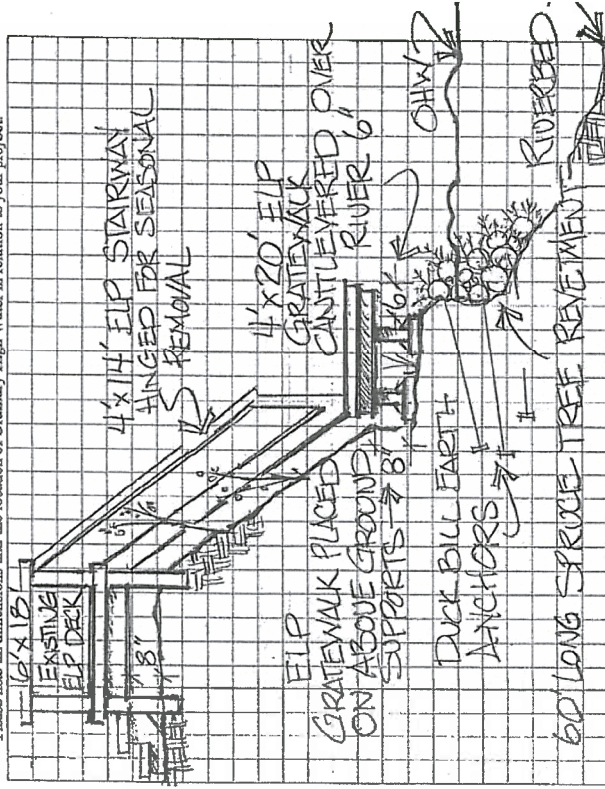 6' x 18'
EXISTING
ELP DECK
8"
4' x 14' ELP STAIRWAY
HINGED FOR SEASONAL
REMOVAL
4' x 20' ELP
GRATEWALK
CANTILEVERED OVER
RIVER 6"
OHW
ELP
GRATEWALK PLACED
ON ABOVE GROUND
SUPPORTS → 8"
6'
DUCK BILL EARTH
ANCHORS
RIVERBED
60' LONG SPRUCE TREE REVETMENT